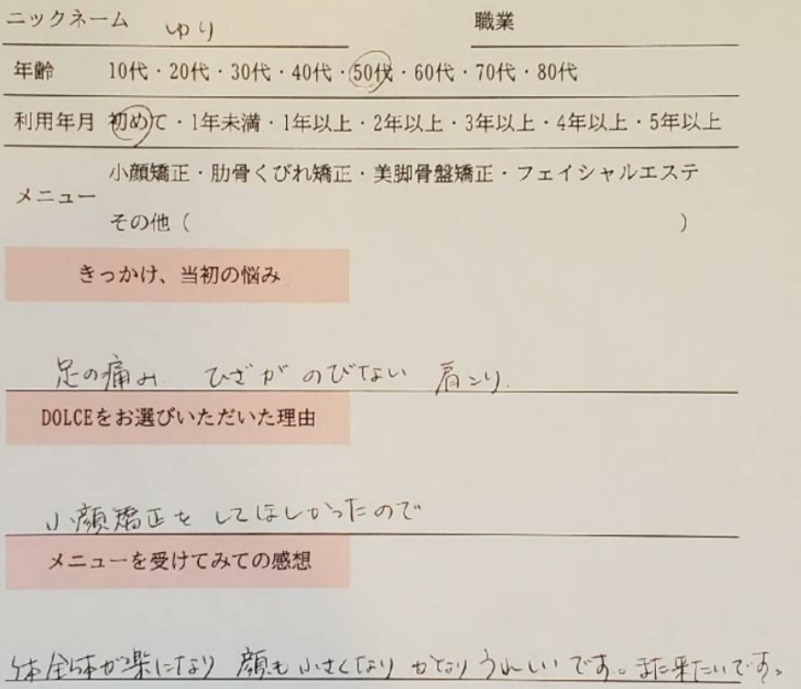 ニックネーム ゆり 職業
年齢 10代・20代・30代・40代・50代・60代・70代・80代
利用年月 初めて・1年未満・1年以上・2年以上・3年以上・4年以上・5年以上
小顔矯正・肋骨くびれ矯正・美脚骨盤矯正・フェイシャルエステ
メニュー
その他（ ）
きっかけ、当初の悩み
足の痛み ひざがのびない 肩こり.
DOLCEをお選びいただいた理由
小顔矯正をしてほしかったので
メニューを受けてみての感想
体全体が楽になり 顔も小さくなり かなりうれしいです。また来たいです。